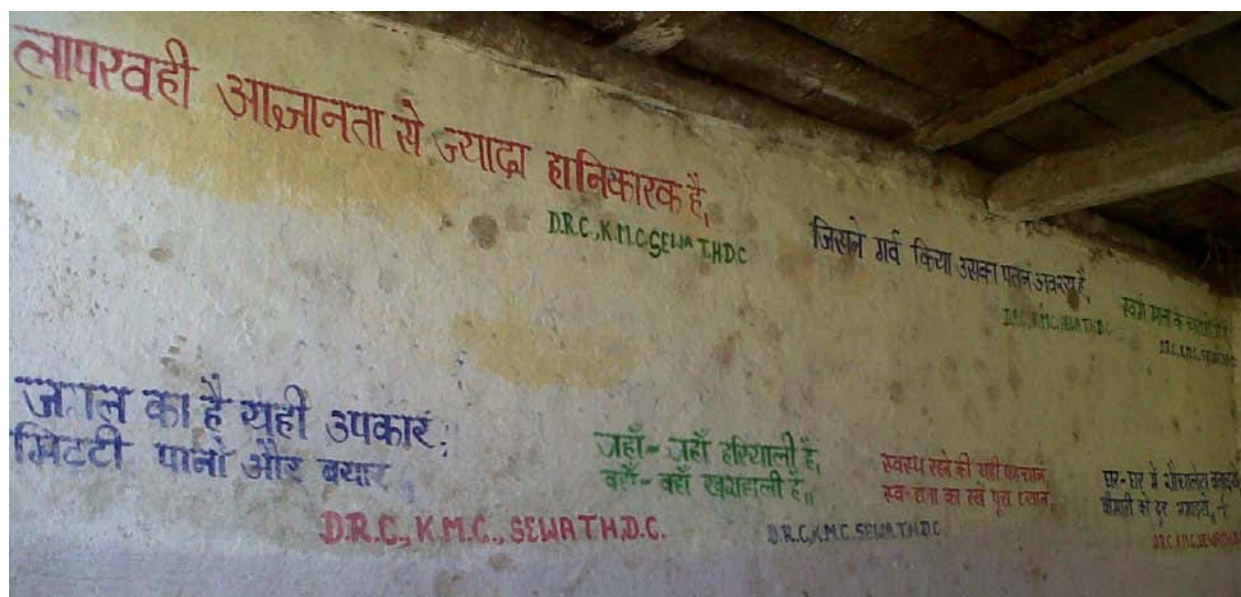 लापरवही आज्ञानता से ज्यादा हानिकारक है,
D.R.C., K.M.C, SEWA T.H.D.C
जिसने गर्व किया उसका पतन अवश्य है,
D.R.C., K.M.C, SEWA T.H.D.C
स्वर्ग माता के चरणों में है
D.R.C., K.M.C, SEWA T.H.D.C
जंगल का है यही उपकार,
मिटटी पानी और बयार
D.R.C., K.M.C., SEWA T.H.D.C.
जहाँ- जहाँ हरियाली है,
वहाँ- वहाँ खुशहाली है॥
D.R.C, K.M.C. SEWA T.H.D.C.
स्वस्थ रहने की यही पहचान,
स्वच्छता का रखें पूरा ध्यान॥
घर-घर में शौचालय बनाइये
बीमारी को दूर भगाइये,
D.R.C, K.M.C, SEWA T.H.D.C